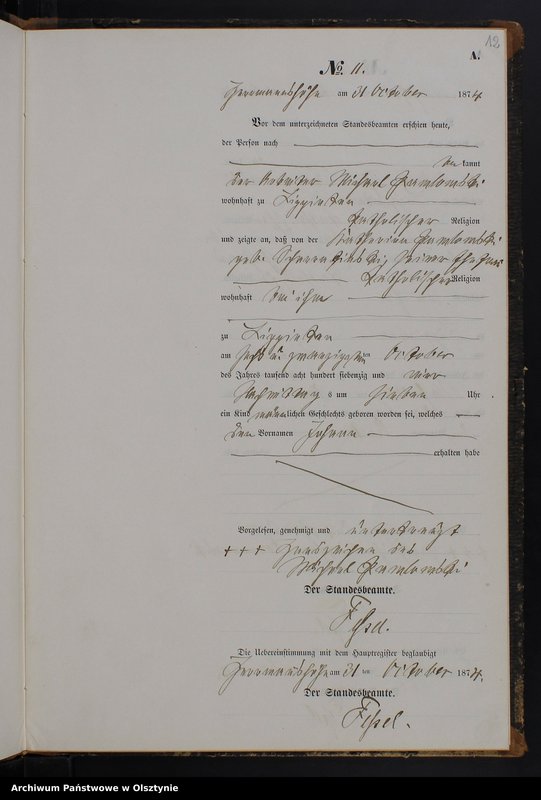 12
A.
No. 11.
Herrmannshöhe am 31 October 1874.
Vor dem unterzeichneten Standesbeamten erschien heute,
der Person nach
bekannt
der Arbeiter Michael Pawlowski
wohnhaft zu Lippinken
katholischer Religion
und zeigte an, daß von der Katharina Pawlowski
geb. seiner Ehefrau
katholischer Religion
wohnhaft bei ihm
zu Lippinken
am sechs u. zwanzigsten October
des Jahres tausend acht hundert siebenzig und vier
Nachmittags um sieben Uhr
ein Kind männlichen Geschlechts geboren worden sei, welches
den Vornamen Johann
erhalten habe
Vorgelesen, genehmigt und unterkreuzt
+++ Handzeichen des
Michael Pawlowski
Der Standesbeamte.
Die Uebereinstimmung mit dem Hauptregister beglaubigt
Herrmannshöhe am 31 ten October 1874.
Der Standesbeamte.
Archiwum Państwowe w Olsztynie